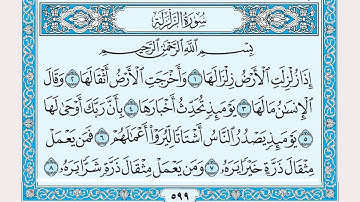 سُورَةُ الزَّلْزَلَةِ
بِسْمِ اللَّهِ الرَّحْمَٰنِ الرَّحِيمِ
إِذَا زُلْزِلَتِ الْأَرْضُ زِلْزَالَهَا ١ وَأَخْرَجَتِ الْأَرْضُ أَثْقَالَهَا ٢ وَقَالَ
الْإِنسَانُ مَا لَهَا ٣ يَوْمَئِذٍ تُحَدِّثُ أَخْبَارَهَا ٤ بِأَنَّ رَبَّكَ أَوْحَىٰ لَهَا
٥ يَوْمَئِذٍ يَصْدُرُ النَّاسُ أَشْتَاتًا لِّيُرَوْا أَعْمَالَهُمْ ٦ فَمَن يَعْمَلْ
مِثْقَالَ ذَرَّةٍ خَيْرًا يَرَهُ ٧ وَمَن يَعْمَلْ مِثْقَالَ ذَرَّةٍ شَرًّا يَرَهُ ٨
٥٩٩